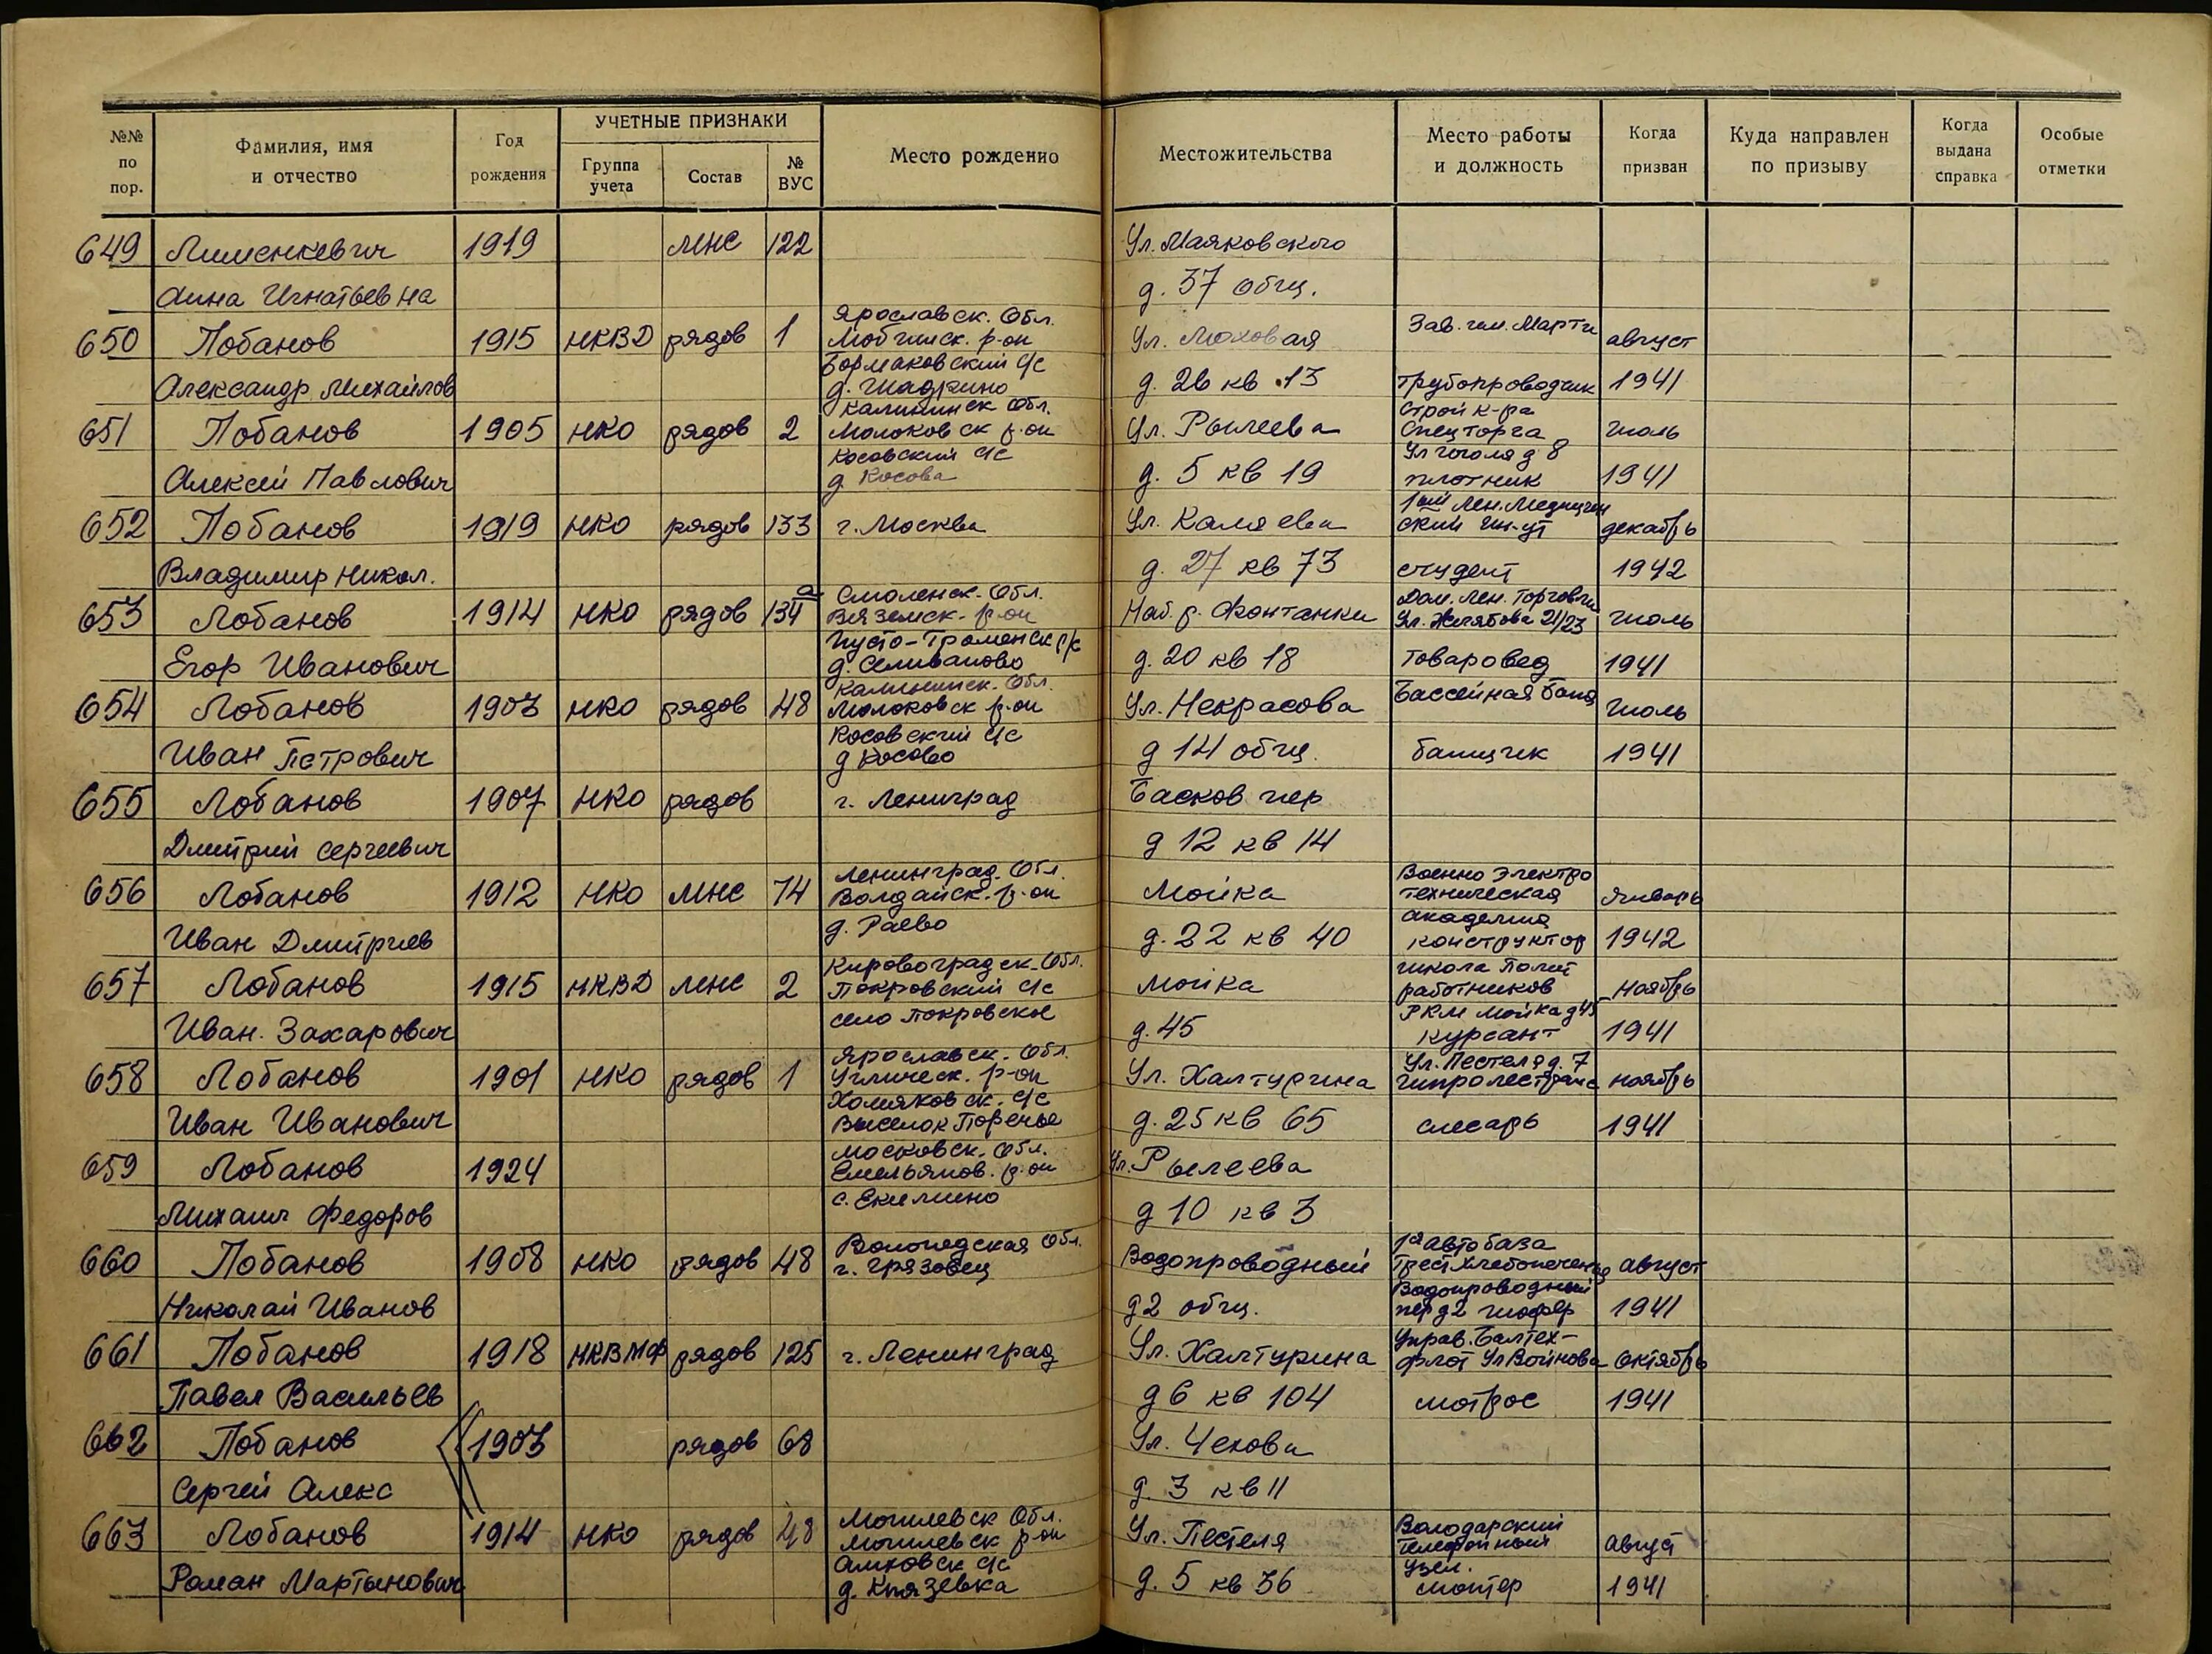 №№ по пор.
Фамилия, имя и отчество
Год рождения
УЧЕТНЫЕ ПРИЗНАКИ
Группа учета
Состав
№ ВУС
Место рождению
Местожительства
Место работы и должность
Когда призван
Куда направлен по призыву
Когда выдана справка
Особые отметки
649 Лименкевич 1919 мнс 122 Ул. Маяковского
Анна Игнатьевна д. 37 общ.
Ярославск. Обл.
650 Лобанов 1915 НКВД рядов 1 р-он Ул. Моховая Зав. им. Марти август
Бормаковский с/с
Александр Михайлов д. Шадрино д. 26 кв 13 трубопроводчик 1941
Калининск Обл. Строй к-ра
651 Лобанов 1905 НКО рядов 2 Молоковск р-он Ул. Рылеева Спецторга июль
Косовский с/с Ул Гоголя д 8
Алексей Павлович д. Косова д. 5 кв 19 плотник 1941
1ый Лен. Медицин
652 Лобанов 1919 НКО рядов 133 г. Москва Ул. Каляева ский ин-ут декабрь
Владимир Никол. д. 27 кв 73 студент 1942
Смоленск. Обл. Дом. Лен. Торговли
653 Лобанов 1914 НКО рядов 134а Вяземск. р-он Наб. р. Фонтанки Ул. Желябова 21/23 июль
Егор Иванович д. Селиваново д. 20 кв 18 товаровед 1941
Калининск. Обл.
654 Лобанов 1903 НКО рядов 48 Молоковск р-он Ул. Некрасова Бассейная баня июль
Косовский с/с
Иван Петрович д Косово д 14 общ. банщик 1941
655 Лобанов 1907 НКО рядов г. Ленинград Басков пер
Дмитрий Сергеевич д 12 кв 14
Ленинград. Обл. Военно Электро
656 Лобанов 1912 НКО мнс 74 Валдайск. р-он Мойка техническая январь
академия
Иван Дмитриев д. Раево д. 22 кв 40 конструктор 1942
Кировоградск. Обл. школа Полит
657 Лобанов 1915 НКВД мнс 2 Покровский с/с Мойка работников ноябрь
село Покровское РКМ Мойка д 45
Иван. Захарович д. 45 курсант 1941
Ярославск. Обл. Ул. Пестеля д. 7
658 Лобанов 1901 НКО рядов 1 Угличск. р-он Ул. Халтурина Гипролестранс ноябрь
Хомяковск. с/с
Иван Иванович Выселок Поречье д. 25 кв 65 слесарь 1941
Московск. Обл.
659 Лобанов 1924 Емельянов. р-он Ул. Рылеева
Михаил Федоров д 10 кв 3
Вологодская Обл. 1я автобаза
660 Лобанов 1908 НКО рядов 48 г. Грязовец Водопроводный Трест Хлебопечения август
Водопроводный
Николай Иванов д 2 общ. пер д 2 шофер 1941
Управ. Балтех-
661 Лобанов 1918 НКВМФ рядов 125 г. Ленинград Ул. Халтурина флот Ул Войнова октябрь
Павел Васильев д 6 кв 104 матрос 1941
662 Лобанов 1903 рядов 68 Ул. Чехова
Сергей Алекс д. 3 кв 11
Могилевск Обл. Володарский
663 Лобанов 1914 НКО рядов 48 Могилевск р-он Ул. Пестеля телефонный август
с/с узел.
Роман Мартынович д. Князевка д. 5 кв 36 монтер 1941